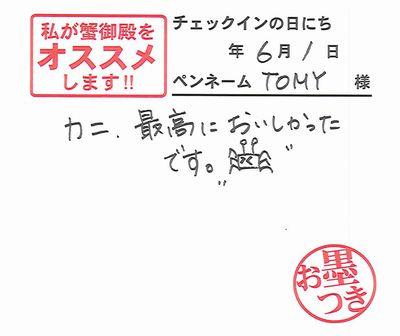 私が蟹御殿を
オススメ
します!!
チェックインの日にち
年 6月 1日
ペンネーム TOMY 様
カニ、最高においしかった
です。
お墨
つき